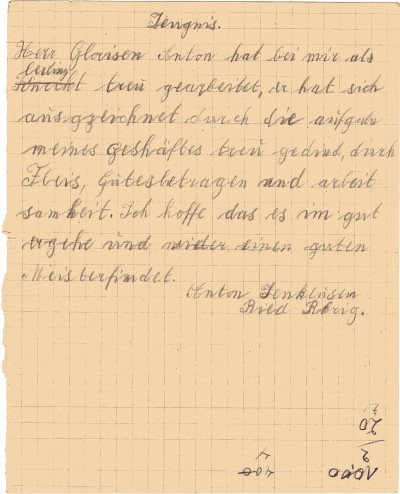 Zeugnis.
Herr Gloisen Anton hat bei mir als
lerling
Knecht treu gearbeitet, er hat sich
ausgzeichnet durch die aufgabe
meines Geshäftes treu gedint, durch
Fleis, Gutesbetragen und arbeit
samkeit. Ich hoffe das es im gut
ergehe und wider einen guten
Meister findet.
Anton
Ried Rärig.
20
2
1000
400
4